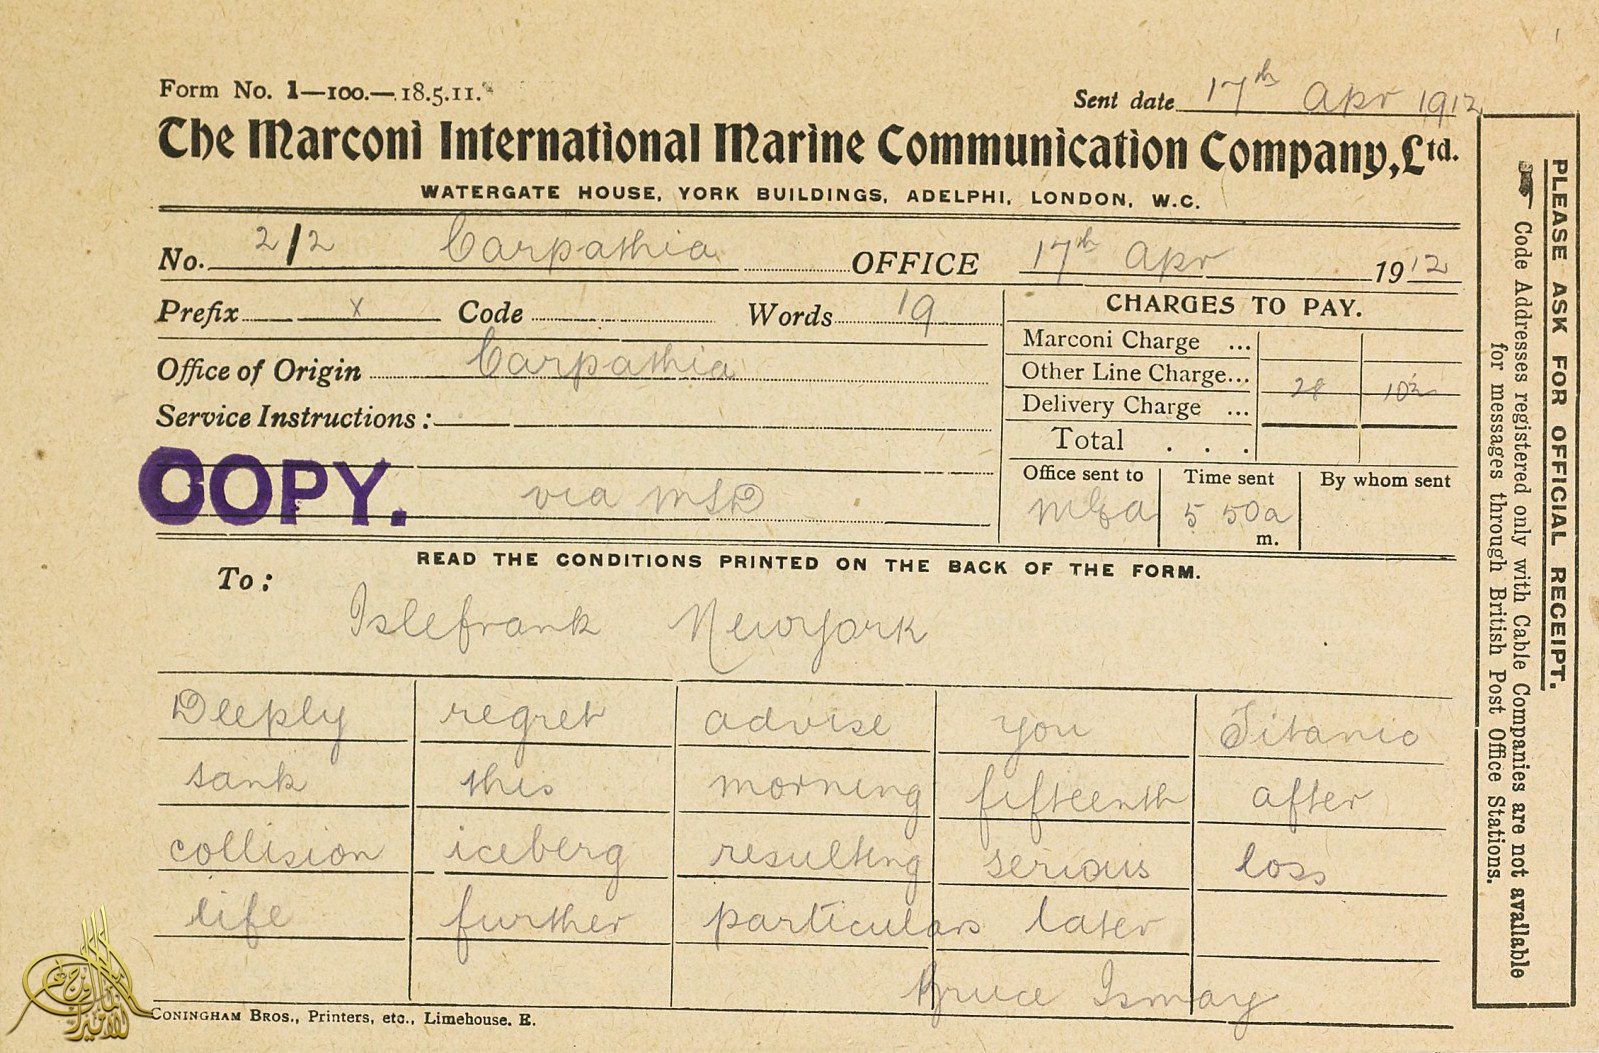 Form No. 1—100.—18.5.11.
Sent date 17th Apr 1912
The Marconi International Marine Communication Company, Ltd.
WATERGATE HOUSE, YORK BUILDINGS, ADELPHI, LONDON, W.C.
No. 2/2 Carpathia OFFICE 17th Apr 1912
Prefix x Code Words 19
Office of Origin Carpathia
Service Instructions:
COPY.
via MSD
CHARGES TO PAY.
Marconi Charge ...
Other Line Charge...
Delivery Charge ...
Total . . .
Office sent to Time sent By whom sent
5 50a
m.
READ THE CONDITIONS PRINTED ON THE BACK OF THE FORM.
To:
Islefrank Newyork
Deeply regret advise you Titanic
sank this morning fifteenth after
collision iceberg resulting serious loss
life further particulars later
Bruce Ismay
CONINGHAM BROS., Printers, etc., Limehouse. E.
PLEASE ASK FOR OFFICIAL RECEIPT.
Code Addresses registered only with Cable Companies are not available
for messages through British Post Office Stations.